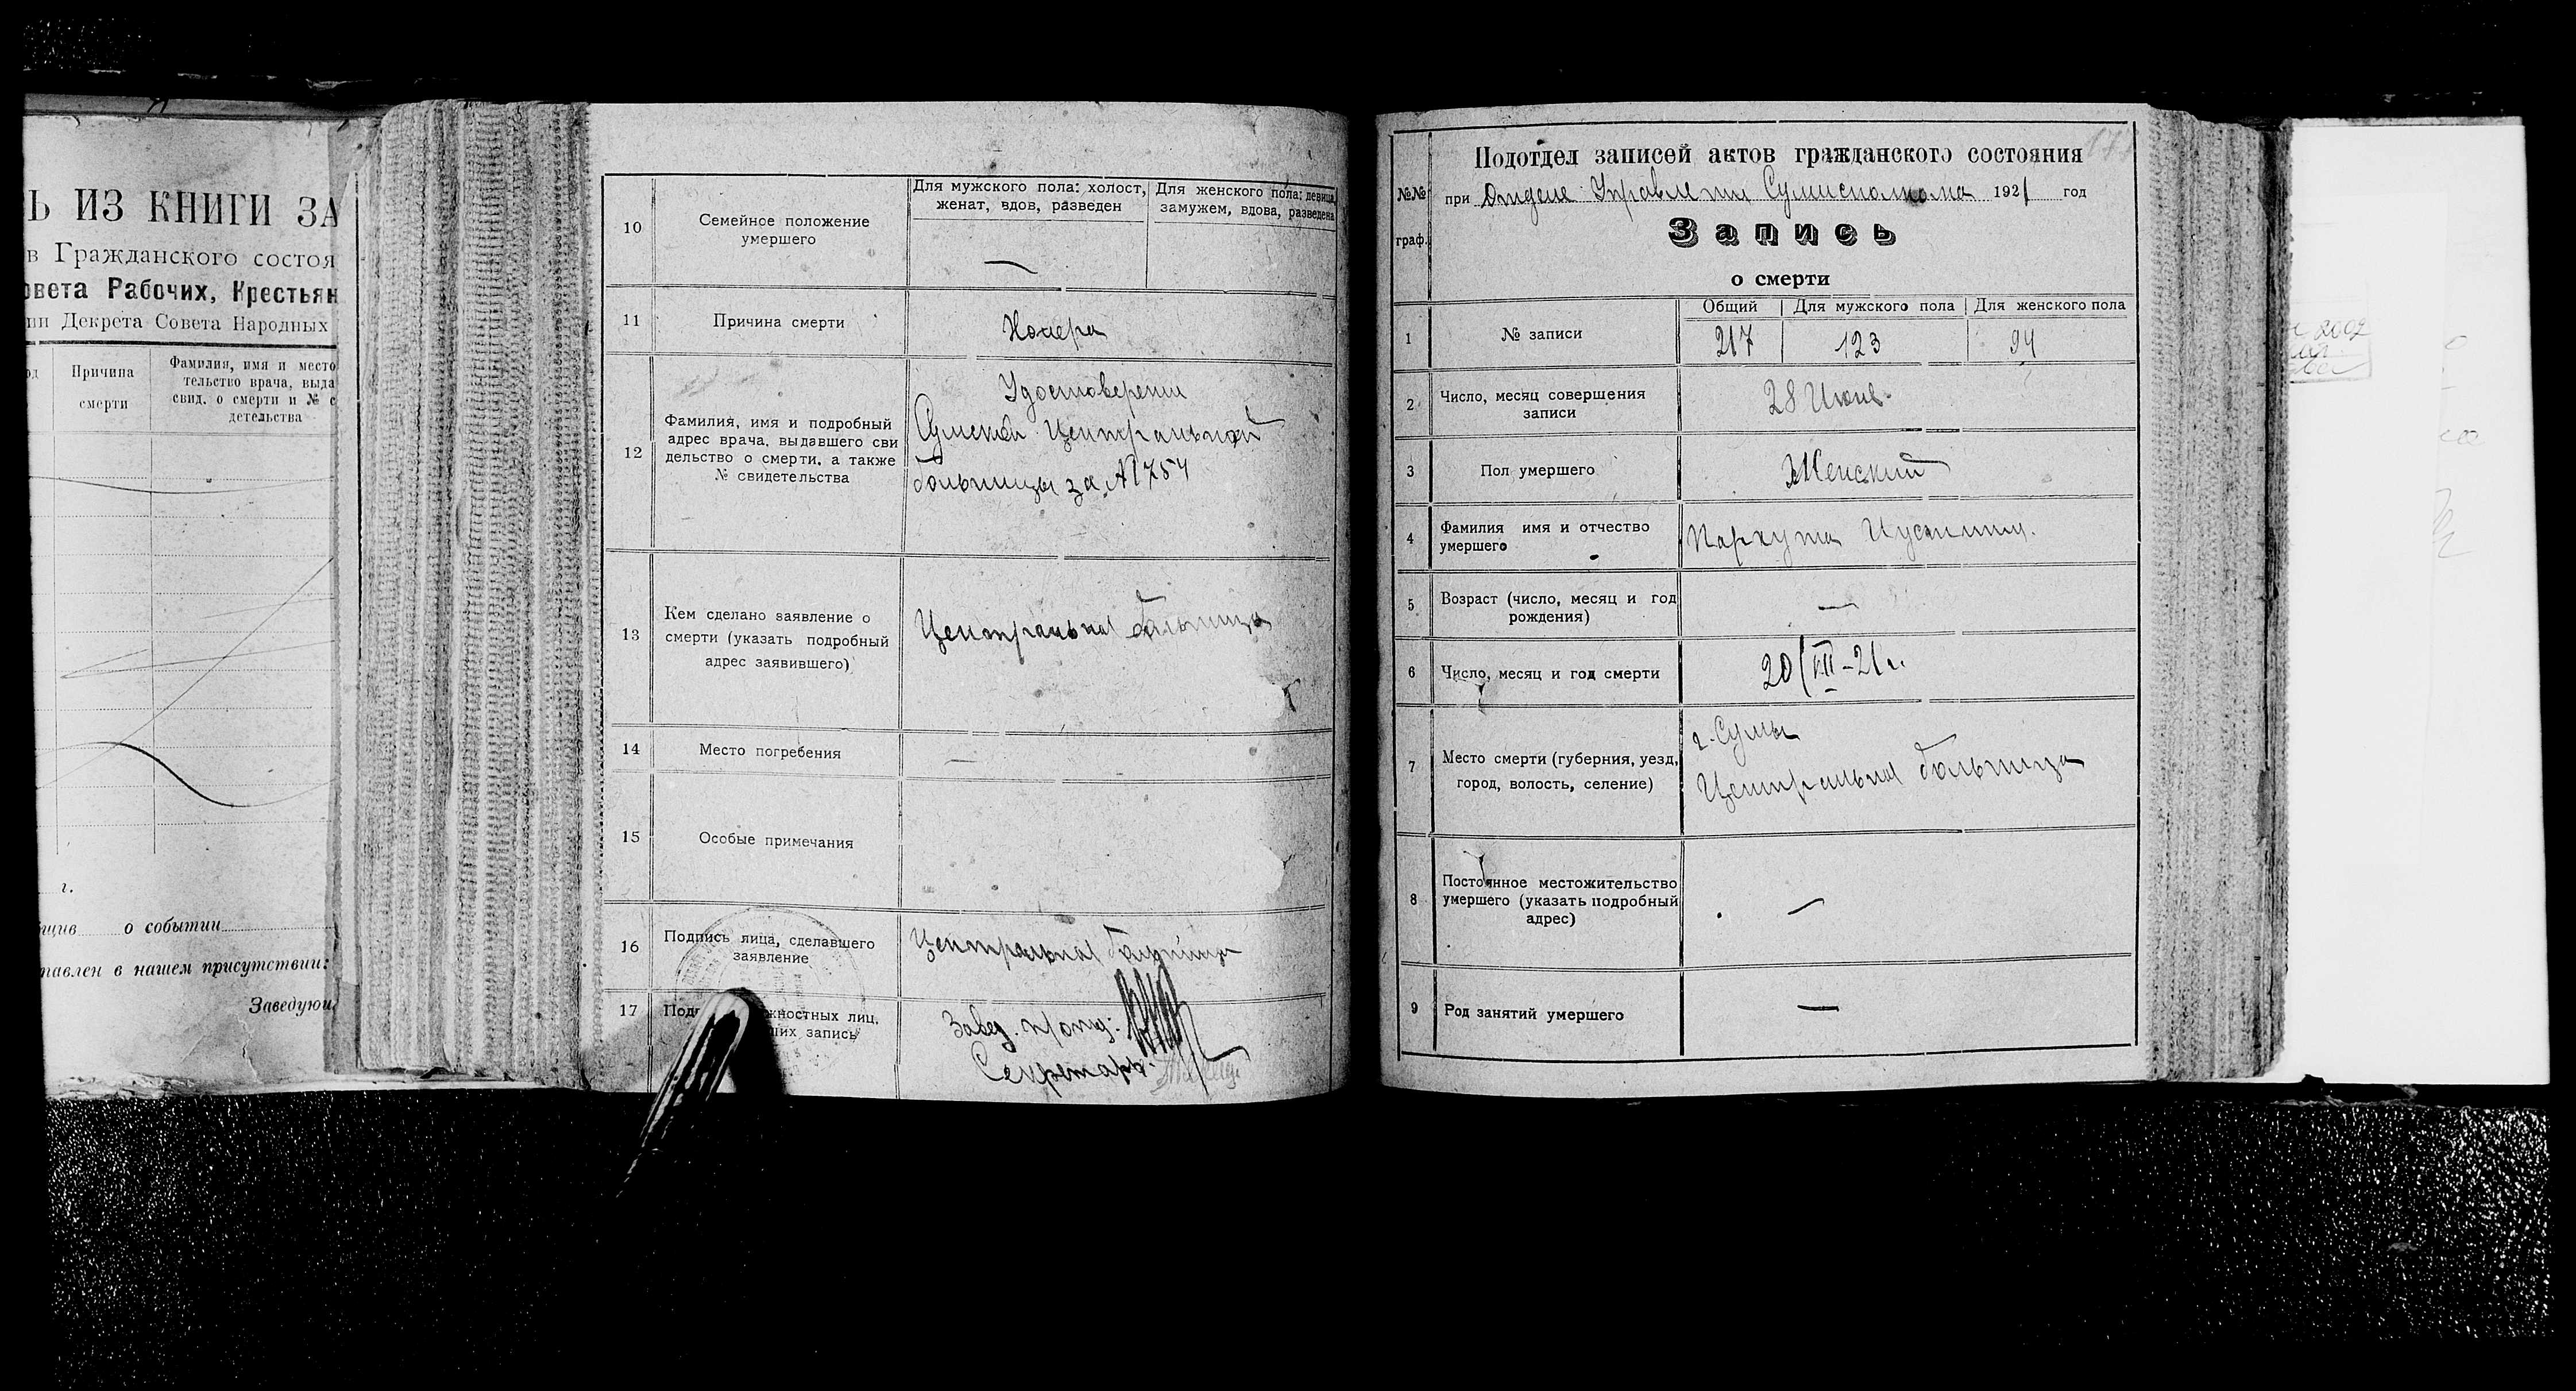 Ь ИЗ КНИГИ ЗА
в Гражданского состоя
овета Рабочих, Крестьян
ии Декрета Совета Народных
Причина
смерти
Фамилия, имя и место
тельство врача, выда
свид. о смерти и № с
детельства
г.
о событии
тавлен в нашем присутствии:
Заведующ
10
Семейное положение
умершего
Для мужского пола: холост,
женат, вдов, разведен
Для женского пола: девица,
замужем, вдова, разведена
—
11
Причина смерти
Холера
12
Фамилия, имя и подробный
адрес врача, выдавшего сви
дельство о смерти, а также
№ свидетельства
Удостоверении
Сумской Центральной
больницы за № 754
13
Кем сделано заявление о
смерти (указать подробный
адрес заявившего)
Центральная больница
14
Место погребения
—
15
Особые примечания
16
Подпись лица, сделавшего
заявление
Центральная больница
17
Под жностных лиц,
ших запись
Завед. п/отд.
Секретарь
Подотдел записей актов гражданского состояния
№№
граф.
при Отделе Управления Сумисполкома 1921 год
Запись
о смерти
1
№ записи
Общий
Для мужского пола
Для женского пола
217
123
94
2
Число, месяц совершения
записи
28 Июня
3
Пол умершего
Женский
4
Фамилия имя и отчество
умершего
Пархута
5
Возраст (число, месяц и год
рождения)
—
6
Число, месяц и год смерти
20/VII-21 г.
7
Место смерти (губерния, уезд,
город, волость, селение)
г. Сумы
Центральная больница
8
Постоянное местожительство
умершего (указать подробный
адрес)
—
9
Род занятий умершего
—
2002